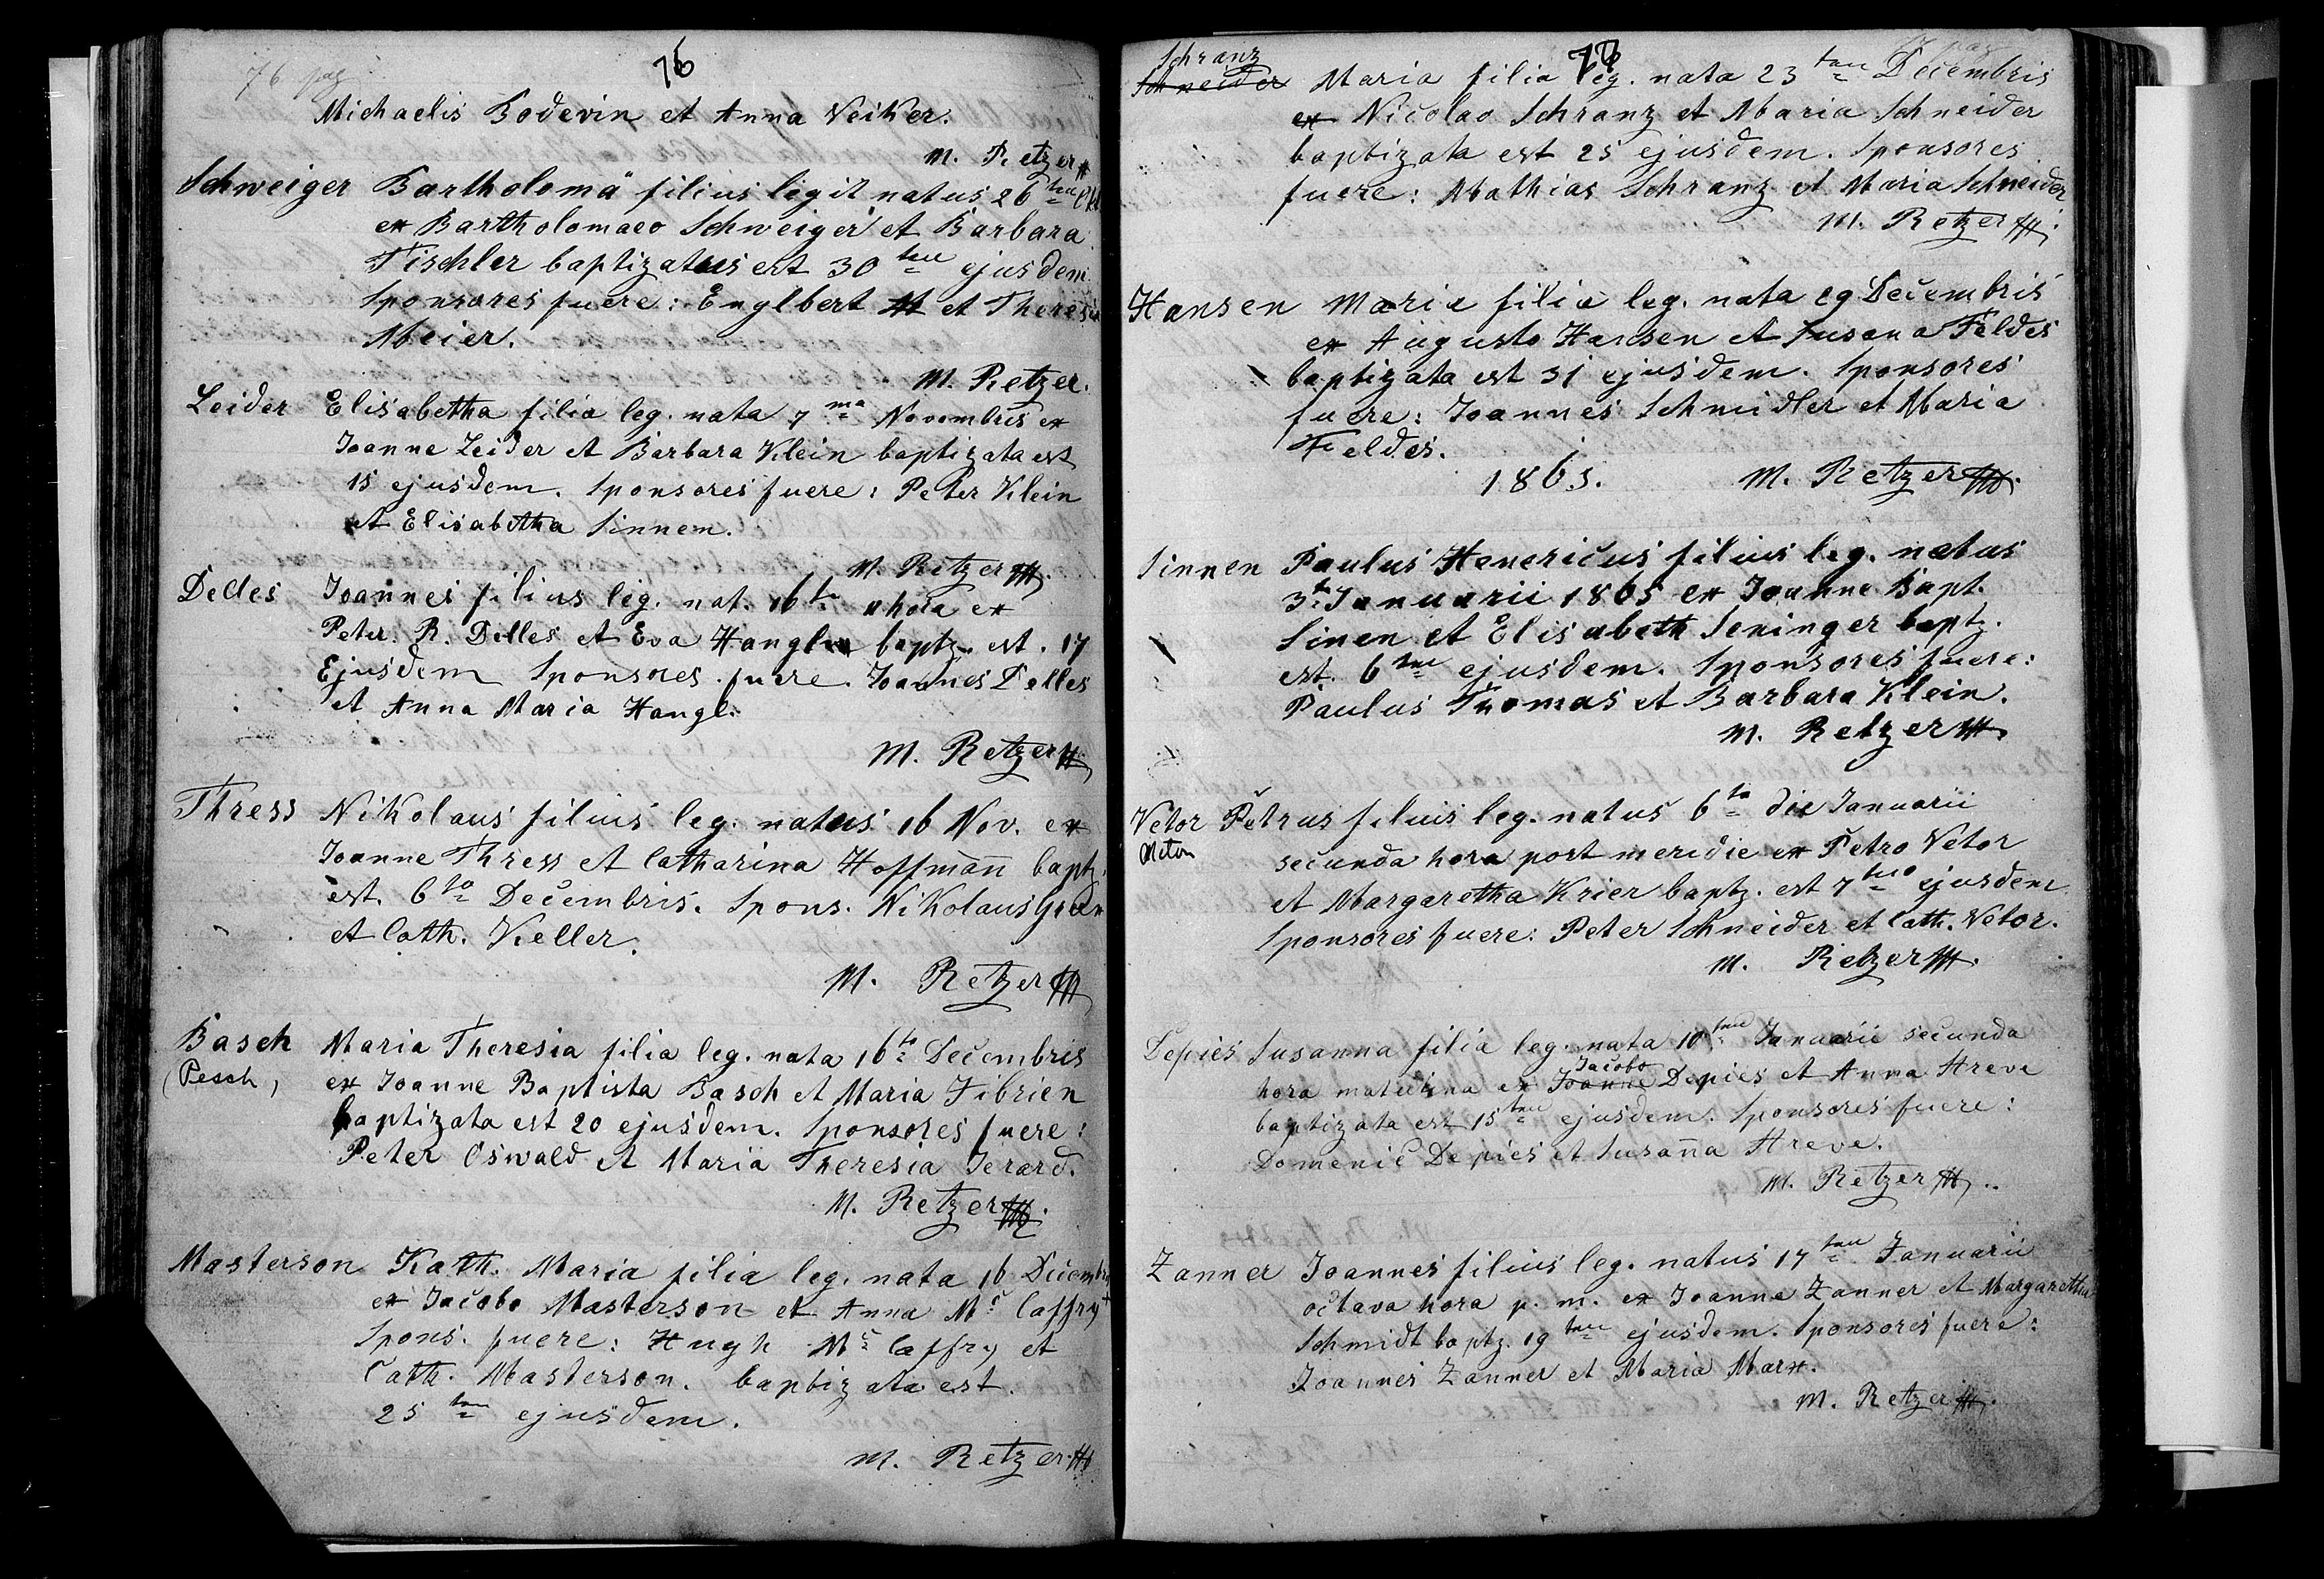 76 pag
76
Michaelis Bodevin et Anna Weiker.
M. Retzer
Schweiger Bartholomä filius legit natus 26 Okt
ex Bartholomaeo Schweiger et Barbara
Tischler baptizatus est 30 ejusdem.
Sponsores fuere: Englbert et Theresia
Meier.
M. Retzer.
Leider Elisabetha filia leg. nata 7ma Novembris ex
Joanne Leider et Barbara Klein baptizata est
15 ejusdem. Sponsores fuere: Peter Klein
et Elisabetha Sinnen.
M. Retzer
Delles Joannes filius leg. nat. 16ta ex
Peter. R. Delles et Eva baptz. est. 17
Ejusdem Sponsores fuere. Joannes Delles
et Anna Maria Hangl.
M. Retzer
Thress Nikolaus filius leg. natus 16 Nov. ex
Joanne Thress et Catharina Hoffmañ baptz.
est. 6ta Decembris. Spons. Nikolaus
et Cath. Keller.
M. Retzer
Basch Maria Theresia filia leg. nata 16ta Decembris
(Pesch) ex Joanne Baptista Basch et Maria Fibrien
baptizata est 20 ejusdem. Sponsores fuere:
Peter Oswald et Maria Theresia Jerard.
M. Retzer
Masterson Kath. Maria filia leg. nata 16 Decembris
ex Jacobo Masterson et Anna Mc Caffry
Spons. fuere: Hugh Mc Caffry et
Cath. Masterson. baptizata est.
25 ejusdem.
M. Retzer
77 pag
77
Schranz
Schneider Maria filia leg. nata 23 Decembris
ex Nicolao Schranz et Maria Schneider
baptizata est 25 ejusdem. Sponsores
fuere: Mathias Schranz et Maria Schneider
M. Retzer
Hansen Maria filia leg. nata 29 Decembris
ex Augusto Hansen et Susana Feldes
baptizata est 31 ejusdem. Sponsores
fuere: Joannes Schneidler et Maria
Feldes.
1865. M. Retzer
Sinnen Paulus Henericus filius leg. natus
3ta Januarii 1865 ex Joanne Bapt.
Sinen et Elisabeth Seninger baptz.
est. 6 ejusdem. Sponsores fuere:
Paulus Thomas et Barbara Klein.
M. Retzer
Vetor Petrus filius leg. natus 6ta die Januarii
secunda hora post meridie ex Petro Vetor
et Margaretha Krier baptz. est 7 ejusdem
Sponsores fuere: Peter Schneider et Cath. Vetor.
M. Retzer
Depies Susanna filia leg. nata 10 Januarii secunda
Jacobo
hora matutina ex Joanne Depies et Anna Areve
baptizata est 15 ejusdem. Sponsores fuere:
Domenic Depies et Susaña Areve.
M. Retzer
Zanner Joannes filius leg. natus 17 Januarii
octava hora p. m. ex Joanne Zanner et Margaretha
Schmidt baptz. 19 ejusdem. Sponsores fuere:
Joannes Zanner et Maria Marx.
M. Retzer